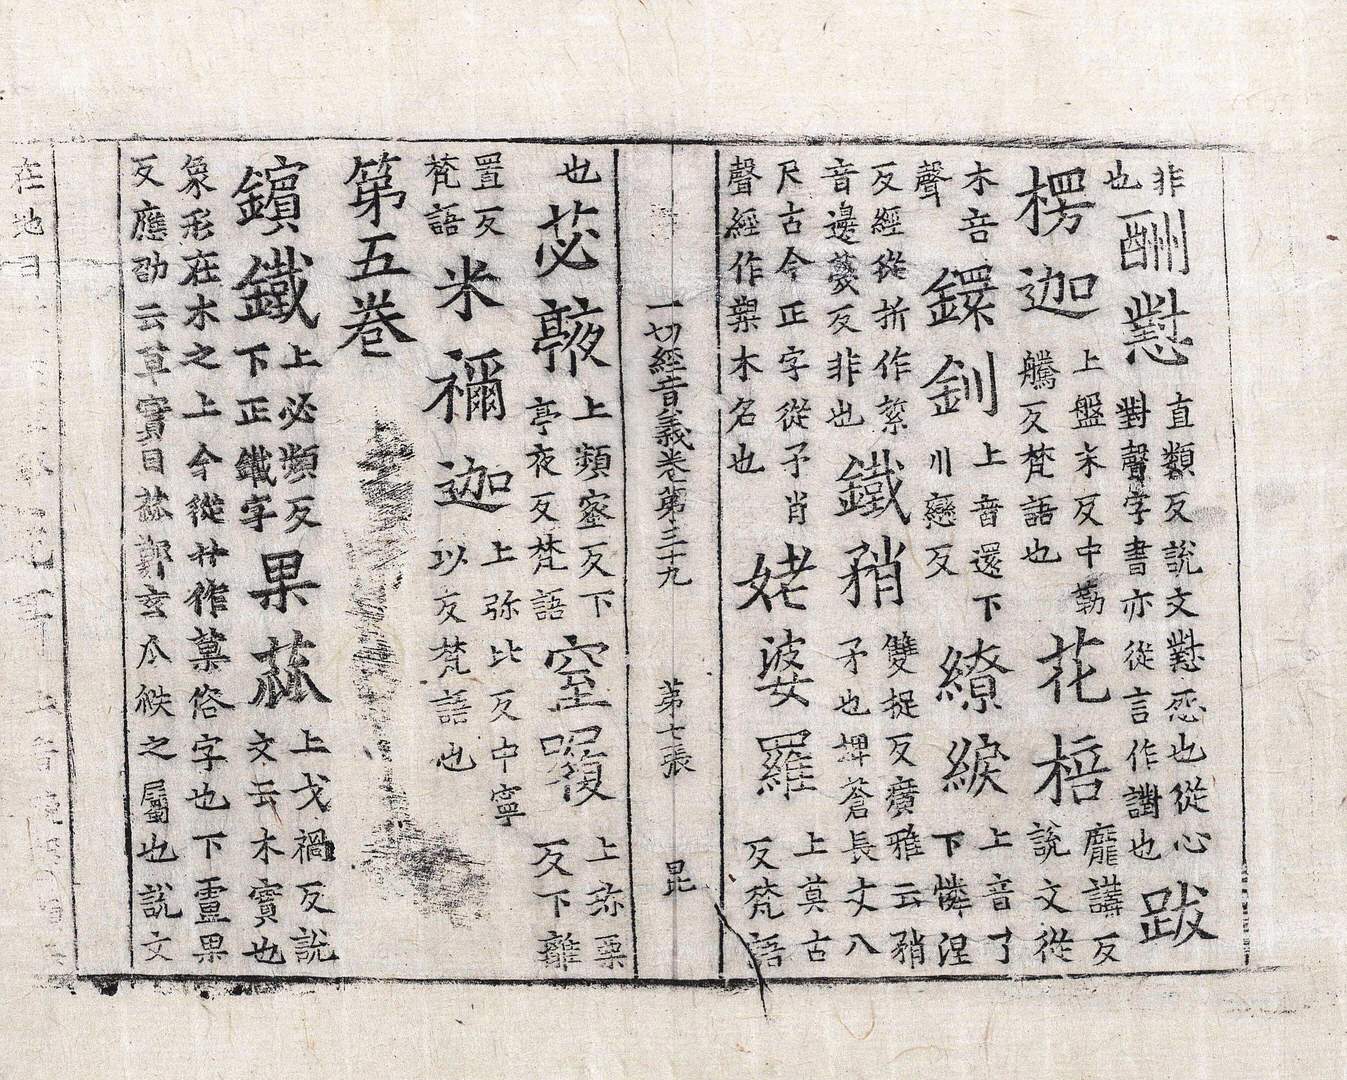 非也酬懟直類反說文懟怨也從心對聲字書亦從言作譵也跋
楞迦上盤末反中勒騰反梵語也花棓龐講反說文從
木咅聲鐶釧上音還下川戀反繚綟上音了下憐涅
反經從折作音邊蔑反非也鐵矟雙捉反廣雅云矟矛也埤蒼長丈八
尺古今正字從矛肖聲經作槊木名也姥婆羅上莫古反梵語
一切經音義卷第三十九 第七張 昆
也苾上頻蜜反下亭夜反梵語窒上珍栗反下離
置反梵語米禰迦上弥比反中寧以反梵語也
第五卷
鑌鐵上必頻反下正鐵字果蓏上戈禍反說文云木實也
象形在木之上今從艸作菓俗字也下盧果反應劭云草實曰蓏鄭玄瓜瓞之屬也說文
在地曰